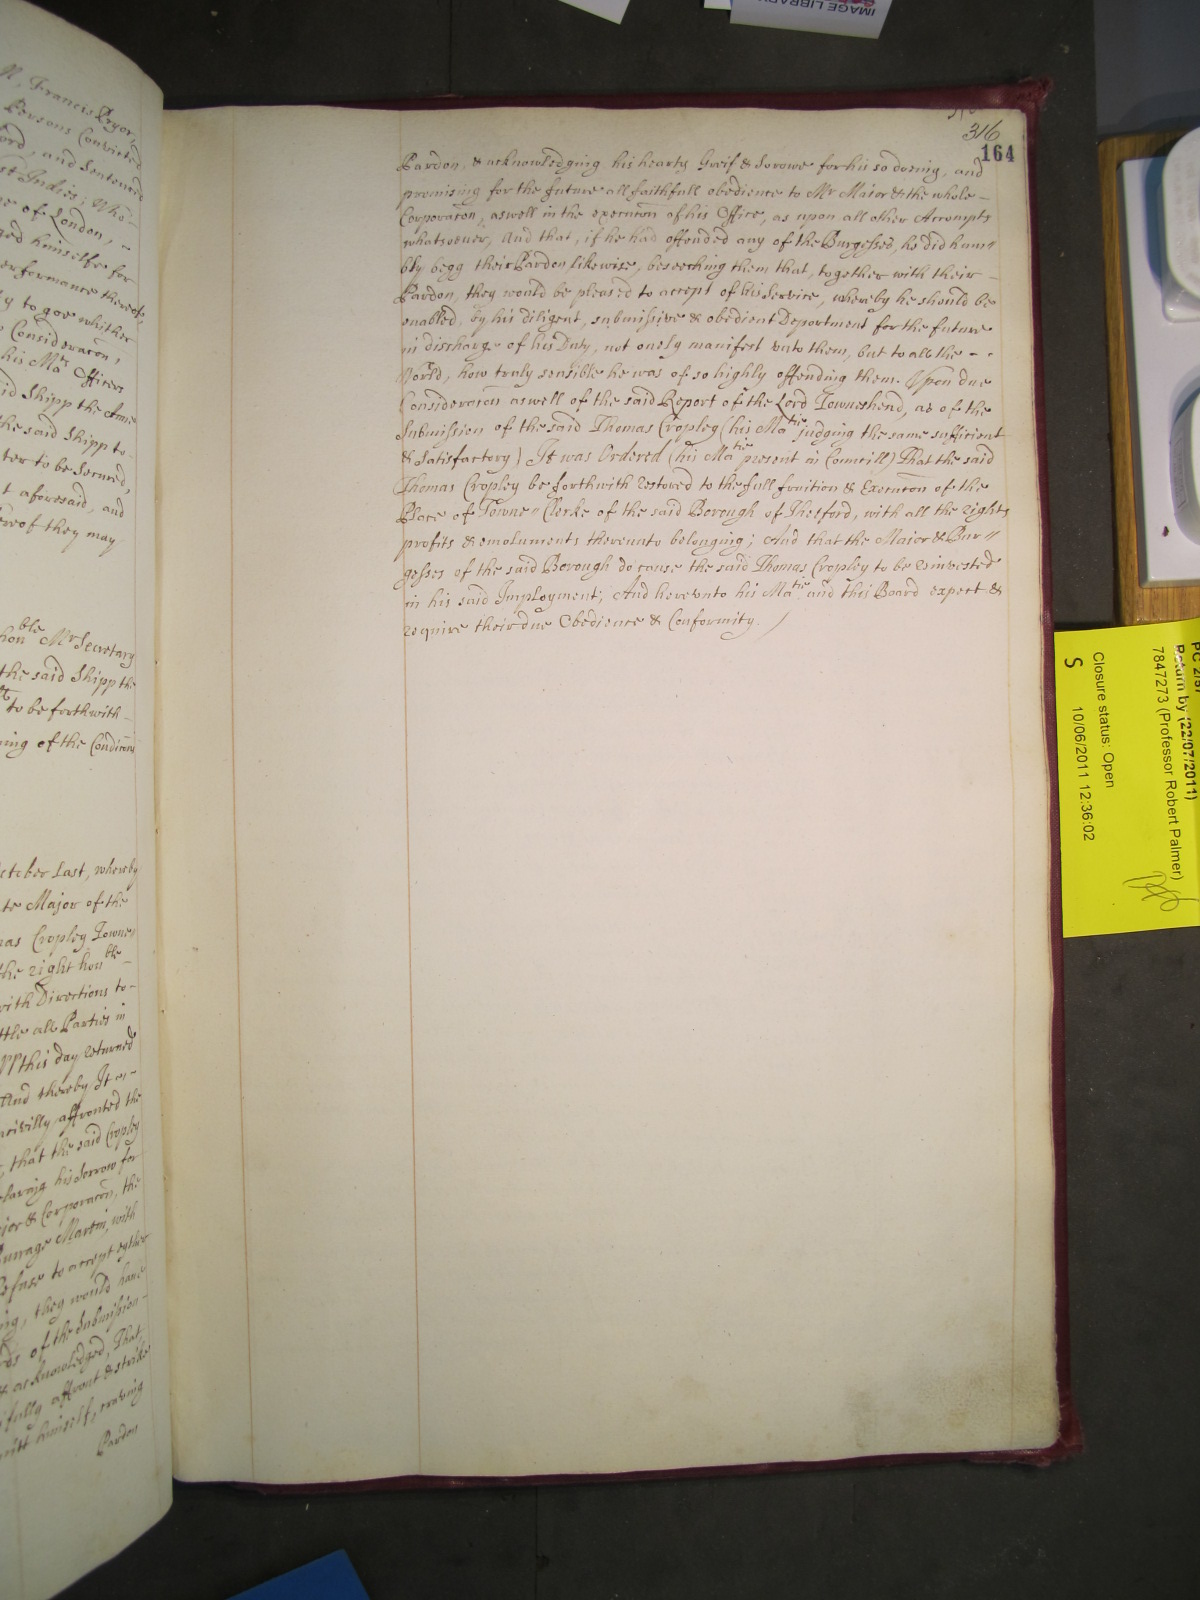 N, Francis Pryor,
Persons Convicted
ord, and Sentenced
st Indies; Who
e of London, ~
ged himselfe for
erformance thereof,
ly to goe whither
Consideracon,
his Ma:ts Officers
id Shipp the Anne
the said Shipp to-
ter to be Secured,
t aforesaid, and
ereof they may
hon:ble Mr Secretary
the said Shipp the
to be forthwith -
ning of the Condicons
ctober last, whereby
te Major of the
mas Cropley Towne//
the right hon:ble -
with Directions to-
ttle all Parties in
this day returned
And thereby It ap-
ncivilly affronted the
, that the said Cropley
claring his sorrow for
jor & Corporacon, the
Burrage Martin, with
Refuse to accept eyther
ing, they would have
ds of the Submission-
& acknowledged, That
fully affront & strike
mitt himself, craving
Pardon
316
164
Pardon, & acknowledging his hearty Greif & Sorowe for his so doeing, and
promising for the future all faithfull obedience to Mr Maior & the whole -
Corporacon, aswell in the execucon of his Office, as upon all other Accompts
whatsoever, And that, if he had offended any of the Burgesses, he did hum//
bly begg their Pardon likewise, beseeching them that, together with their -
Pardon, they would be pleased to accept of his Service, whereby he should be
enabled, by his diligent, submissive & obedient Deportment for the future
in discharge of his Duty, not onely manifest unto them, but to all the - -
World, how truly sensible he was of so highly offending them. Upon due
Consideracon aswell of the said Report of the Lord Towneshend, as of the
Submission of the said Thomas Cropley (his Ma:tie judging the same sufficient
& satisfactory) It was Ordered (his Ma:tie present in Councill) That the said
Thomas Cropley be forthwith restored to the full fruition & Execucon of the
Place of Towne//Clerke of the said Borough of Thetford, with all the rights
profits & emoluments thereunto belonging; And that the Major & Bur//
gesses of the said Borough do cause the said Thomas Cropley to be reinvested
in his said Imployment; And hereunto his Ma:tie and this Board expect &
require their due Obedience & Conformity. /
IMAGE LIBRARY
Return by (22/07/2011)
7847273 (Professor Robert Palmer)
Closure status: Open
S 10/06/2011 12:36:02